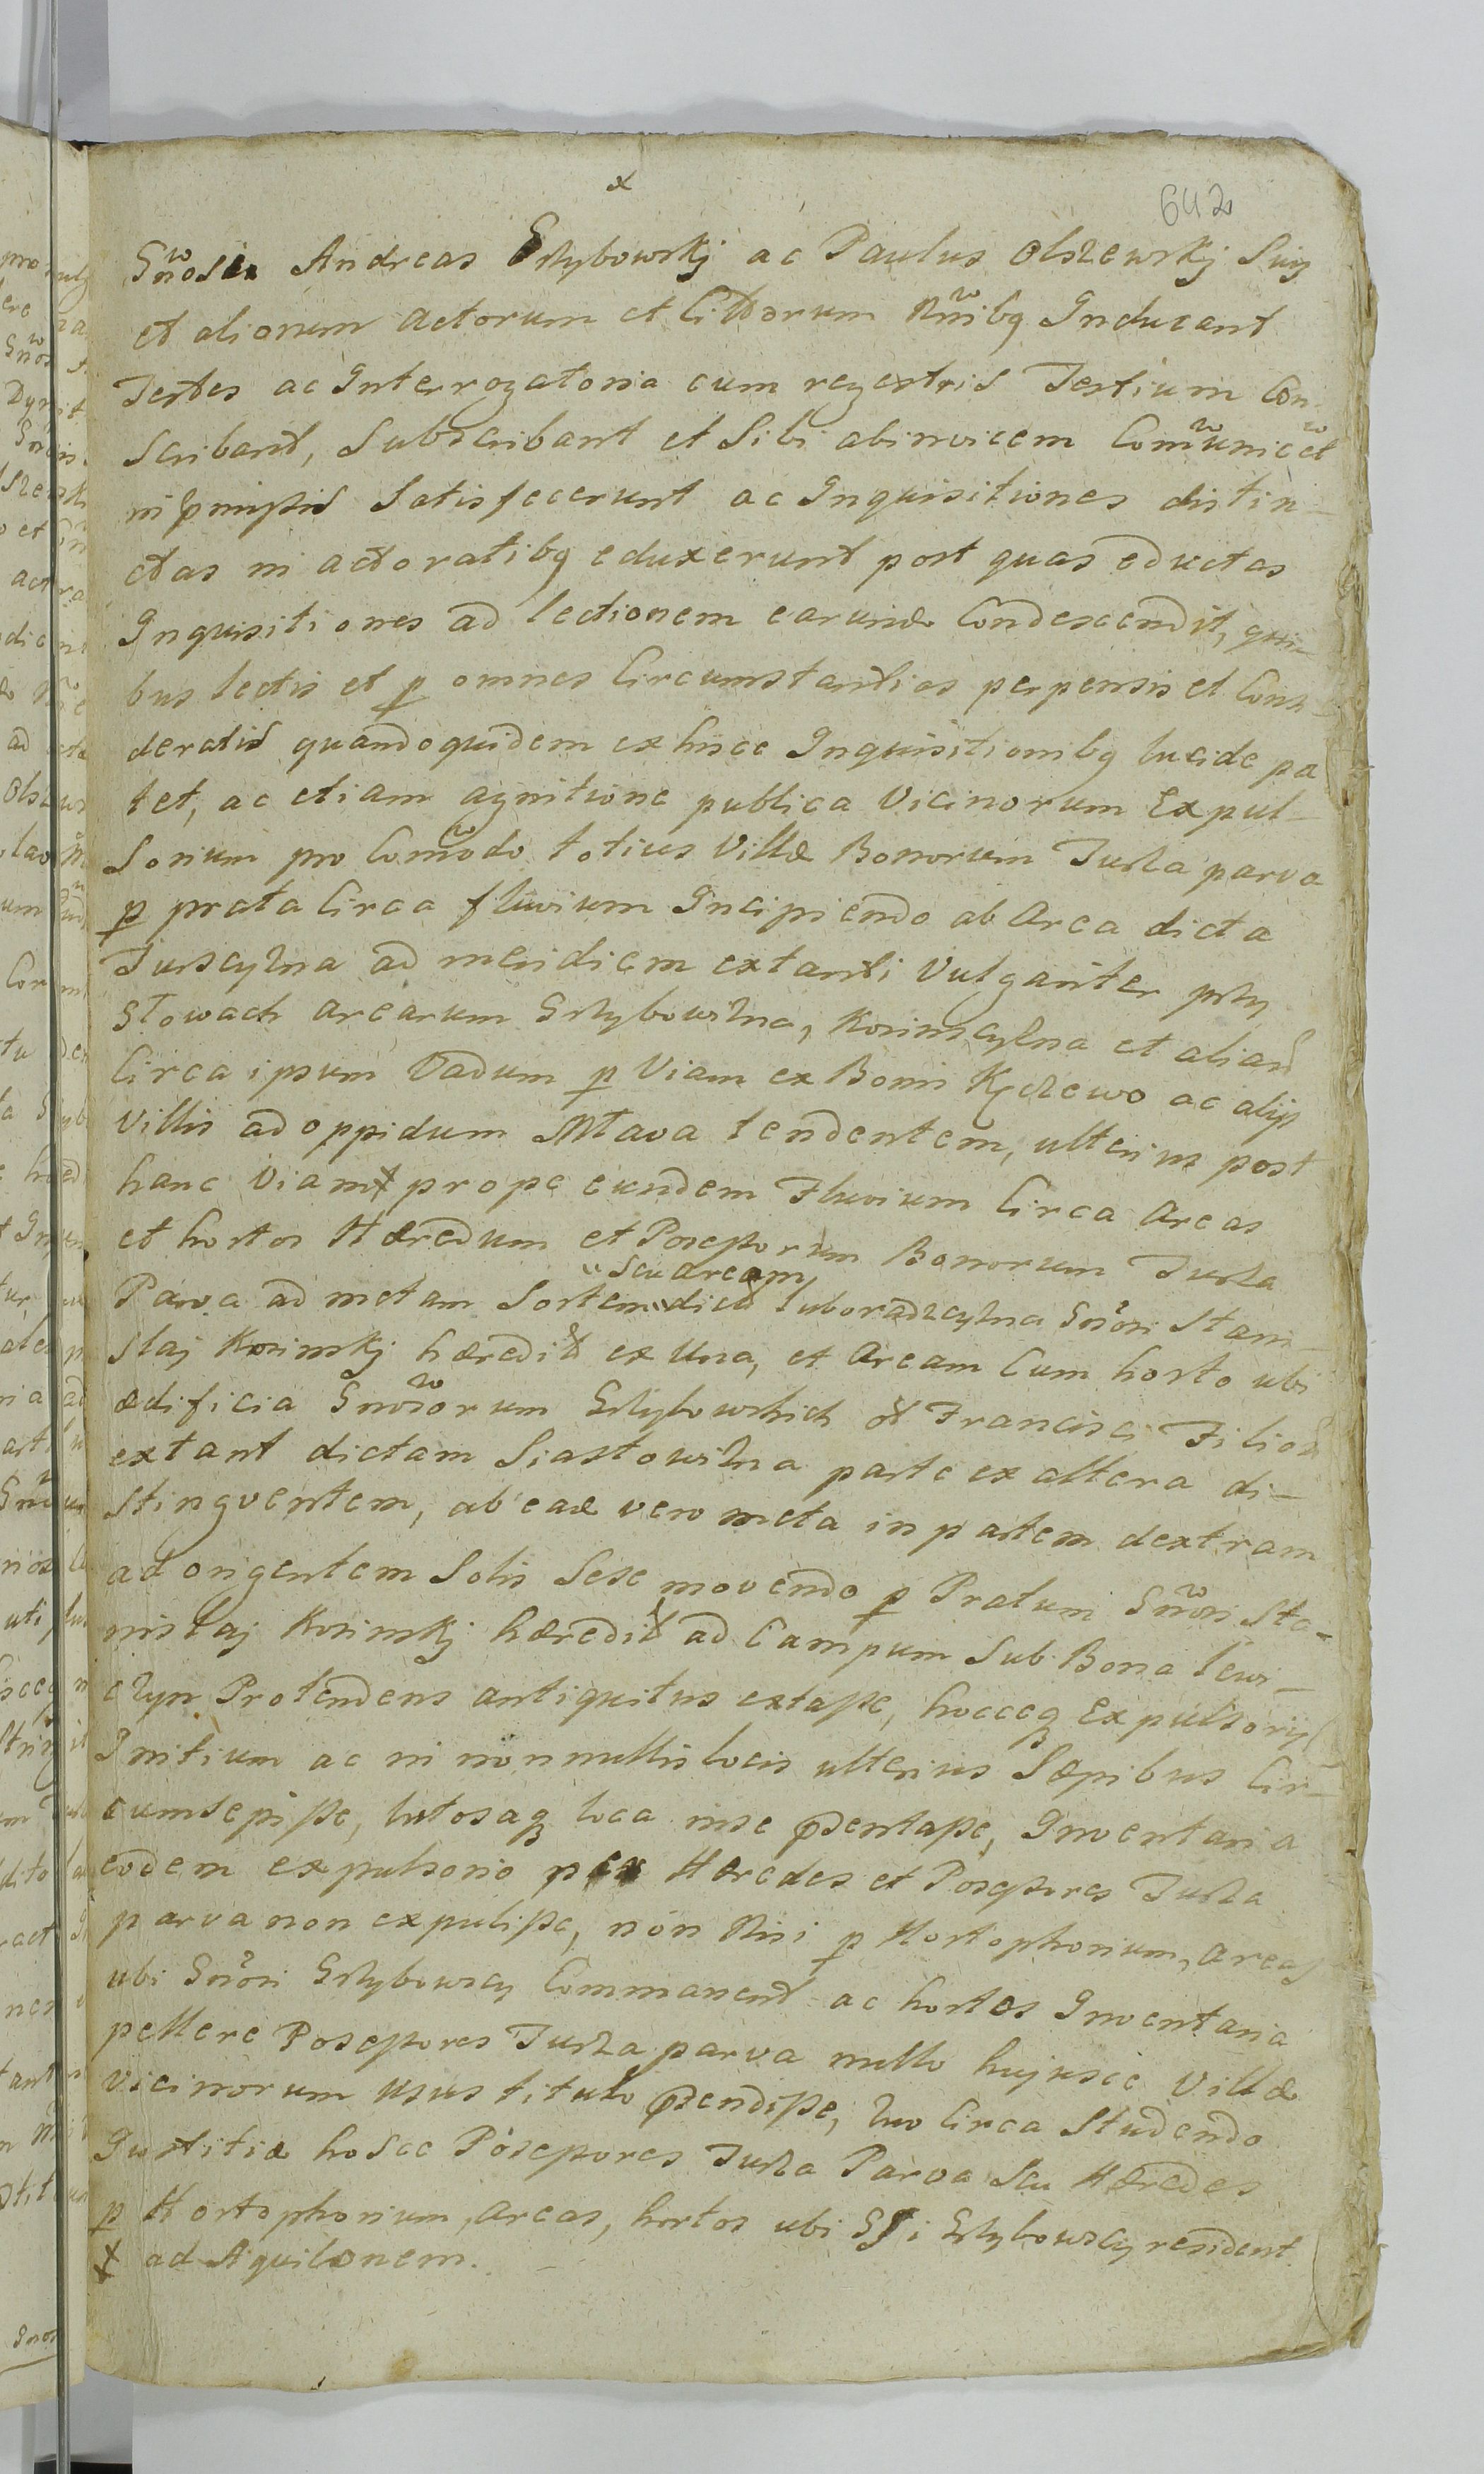 x
642
Gnosi Andreas Grzybowskj ac Paulus Olszewskj Suis
et aliorum Actorum et Cittorum Nnibq Inducant
Testes ac Interrogatoria cum regestris Testium Con-
scribant, Subscribant et Sibi abinvicem Communicet
in pmissis Satisfecerunt ac Inquisitiones distin-
ctas in actoratibq eduxerunt post quas eductas
Inquisitiones ad lectionem earund Condescendit, qui-
bus lectis et p omnes Circumstantias perpensis et Consi-
deratis quandoquidem ex hisce Inquisitionibq lucide pa
tet, ac etiam agnitione publica Vicinorum Expul-
Sorium pro Comodo totius Villæ Bonorum Turza parva
p prata Circa fluvium Incipiendo ab Area dicta
Turscyzna ad meridiem extanti Vulgariter przy
Stowach Arearum Grzybowizna, Kosinscyzna et aliar
Circa ipsum Vadum p Viam ex Bonis Kęczewo ac alijs
Villis ad oppidum Mława tendentem, ulterius post
hanc Viam x prope eundem Fluvium Circa Areas
et hortos Hæredum et Possessorum Bonorum Turza
Seu aream
Parva ad metam Sortem dict Luboradzcyzna Gnosi Stani-
slaj Kosinskj hæredit ex Una, et Aream Cum horto ubi
ædificia Gnosorum Grzybowskich Francisci Filior
extant dictam Siastowizna parte ex altera di-
stinguentem, ab eae vero meta in partem dextram
ad orientem Solis Sese movendo p Pratum Gnosi Sta-
nislaj Kosinskj hæredit ad Campum Sub Bona Lewi-
czyn Protendens antiquitus extasse, hocceq Expulsorij
Initium ac in nonnullis locis ulterius Sæpibus Cir-
cumsepisse, lutosaq loca inse psentasse, Inventaria
eodem expulsorio per Hæredes et Possessores Turza
parva non expulisse, non Nisi p Hortophorium, Areas
ubi Gnosi Grzybowscy Commanent ac hortos Inventaria
pellere Possessores Turza parva nullo hujusce Villæ
Vicinorum Usus titulo ptendisse, quo Circa Studendo
Justitiæ hosce Possessores Turza Parva Seu Hæredes
p Hortophorium, Areas, hortos ubi GGi Grzybowscy resident
x ad Aquilonem.